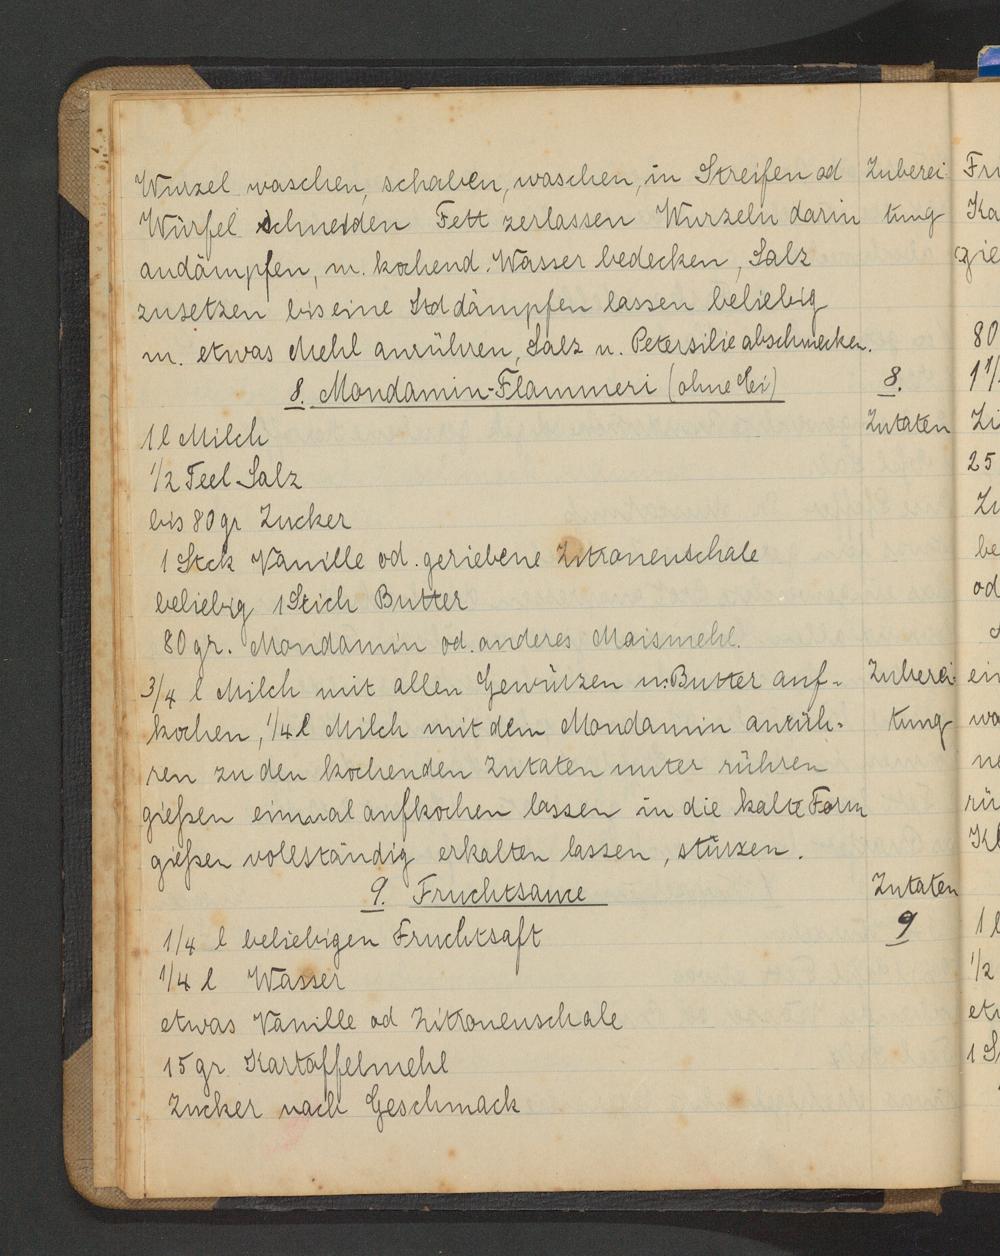 Wurzel waschen, schaben, waschen, in Streifen od Zuberei
Würfel schneiden Fett zerlassen Wurzeln darin tung
andämpfen, m. kochend. Wasser bedecken, Salz
zusetzen bis eine Std dämpfen lassen beliebig
m. etwas Mehl anrühren, Salz u. Petersilie abschmecken.
8. Mondamin-Flammeri (ohne Ei) 8.
1 l Milch Zutaten
1/2 Teel Salz
bis 80 gr Zucker
1 Stck Vanille od. geriebene Zitronenschale
beliebig 1 Stich Butter
80 gr. Mondamin od. anderes Maismehl.
3/4 l Milch mit allen Gewürzen u. Butter auf- Zuberei-
kochen, 1/4 l Milch mit dem Mondamin anrüh- tung
ren zu den kochenden Zutaten unter rühren
gießen einmal aufkochen lassen in die kalte Form
gießen vollständig erkalten lassen, stürzen.
9. Fruchtsauce Zutaten
1/4 l beliebigen Fruchtsaft 9
1/4 l Wasser
etwas Vanille od Zitronenschale
15 gr Kartoffelmehl
Zucker nach Geschmack
Fru
Ka
gie
80
1 1/
Zi
25
Zu
be
od
ein
wa
ne
rü
Kl
1 l
1/2
etw
1 S